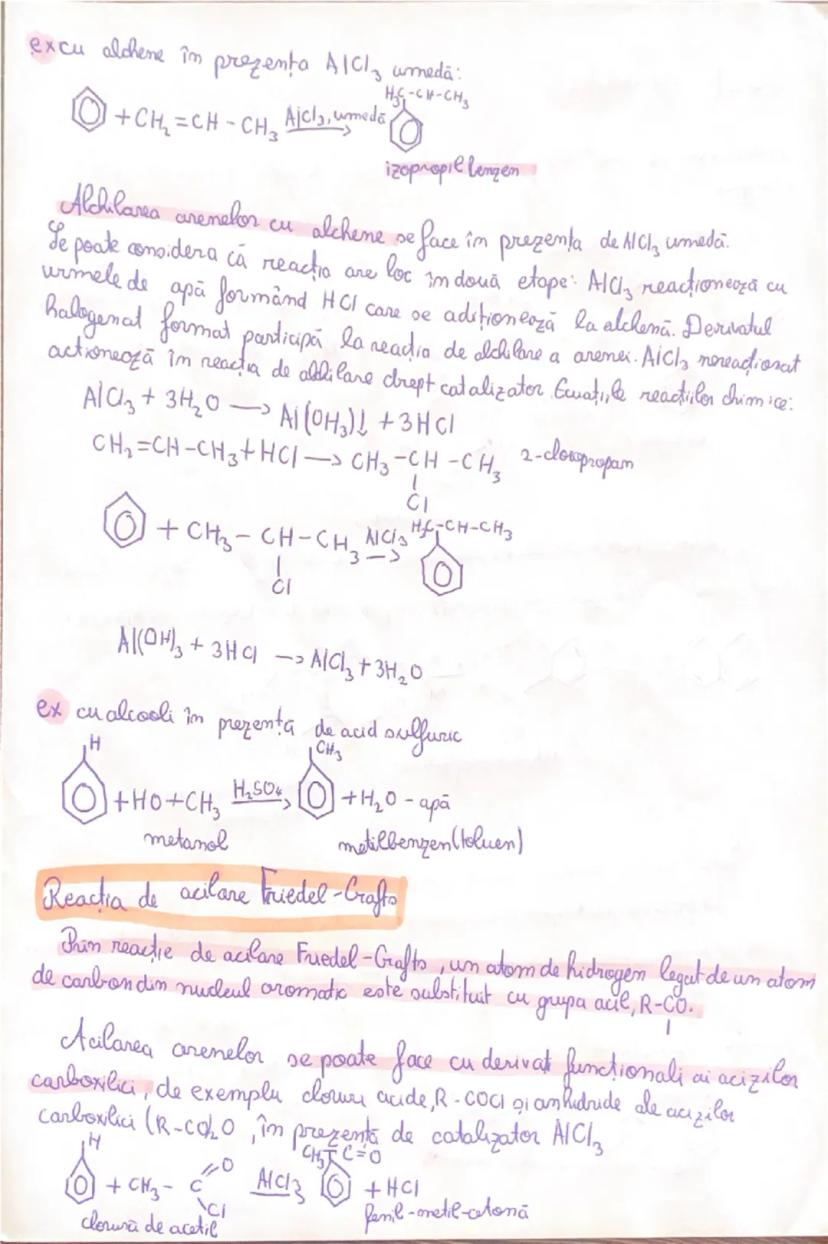 ex cu alchene în prezența AlCl3 umedă:
H3C-CH-CH3
+ CH2=CH-CH3 AlCl3, umedă →
izopropilbenzen
Alchilarea arenelor cu alchene se face în prezența de AlCl3 umedă.
Se poate considera că reacția are loc în două etape: AlCl3 reacționează cu
urmele de apă formând HCl care se adiționează la alchenă. Derivatul
halogenat format participă la reacția de alchilare a arenei. AlCl3 nereacționat
acționează în reacția de alchilare drept catalizator. Ecuațiile reacțiilor chimice:
AlCl3 + 3H2O → Al(OH3)↓ + 3HCl
CH2=CH-CH3+HCl → CH3-CH-CH3 2-cloropropan
Cl
+ CH3-CH-CH3 AlCl3 → H3C-CH-CH3
Cl
Al(OH)3 + 3HCl → AlCl3 + 3H2O
ex cu alcooli în prezență de acid sulfuric
H CH3
+HO+CH3 H2SO4 → +H2O - apă
metanol metilbenzen (toluen)
Reacția de acilare Friedel-Crafts
Prin reacție de acilare Friedel-Crafts, un atom de hidrogen legat de un atom
de carbon din nucleul aromatic este substituit cu grupa acil, R-CO.
Acilarea arenelor se poate face cu derivați funcționali ai acizilor
carboxilici, de exemplu cloruri acide, R-COCl și anhidride ale acizilor
carboxilici (R-CO)2O, în prezență de catalizator AlCl3
H CH3-C=O
+ CH3-C =O AlCl3 → + HCl
Cl
clorură de acetil fenil-metil-cetonă